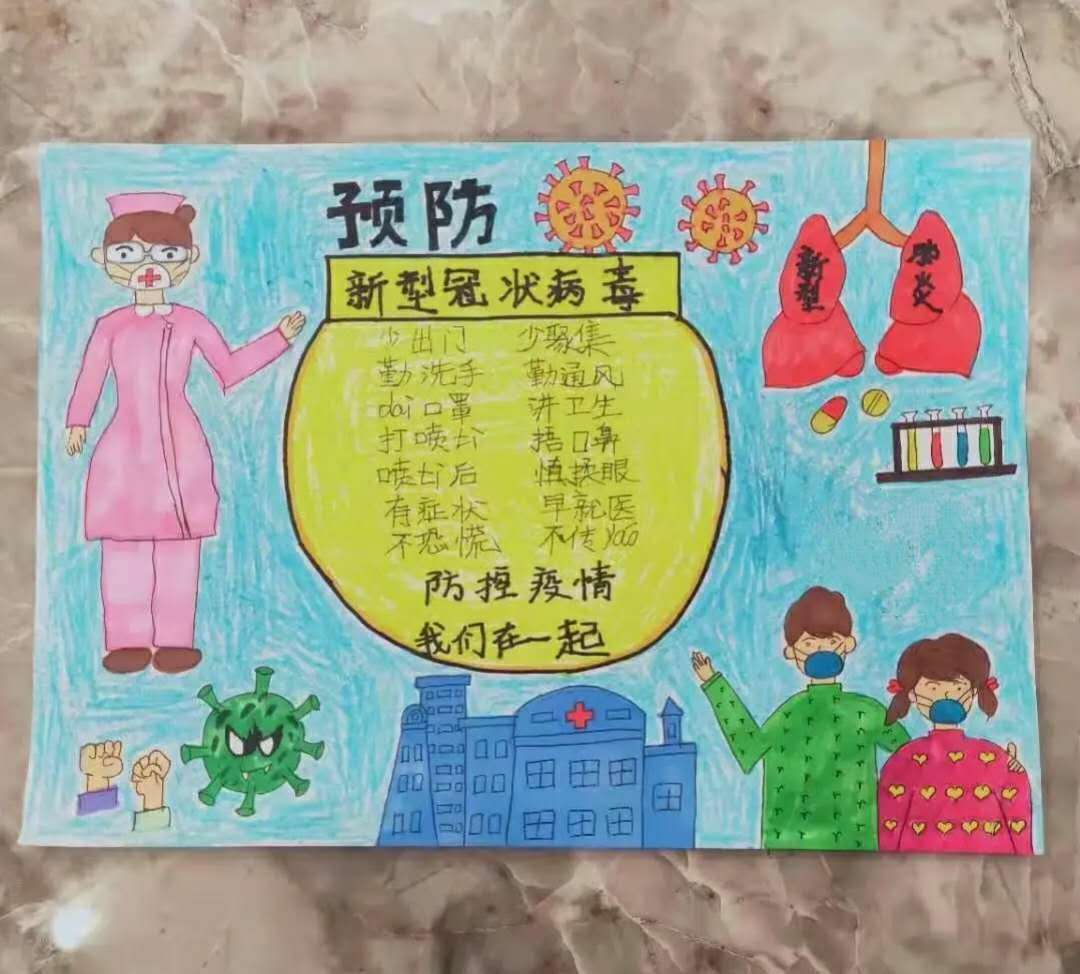 预防
新型冠状病毒
新型 肺炎
少出门 少聚集
勤洗手 勤通风
dai口罩 讲卫生
打喷ti 捂口鼻
喷ti后 慎揉眼
有症状 早就医
不恐慌 不传yao
防控疫情
我们在一起